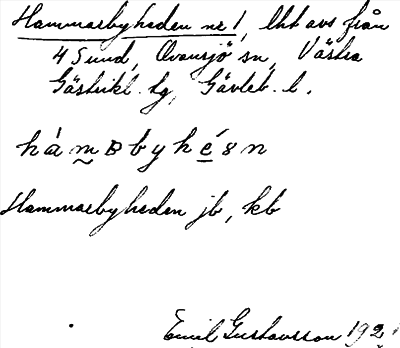 Hammarbyheden nr 1, lht avs från
4 Sund, Ovansjö sn, Västra
Gästrikl. hg, Gävleb. l.
hámʙbyhé8n
Hammarbyheden jb, kb
Emil Gustavsson 192